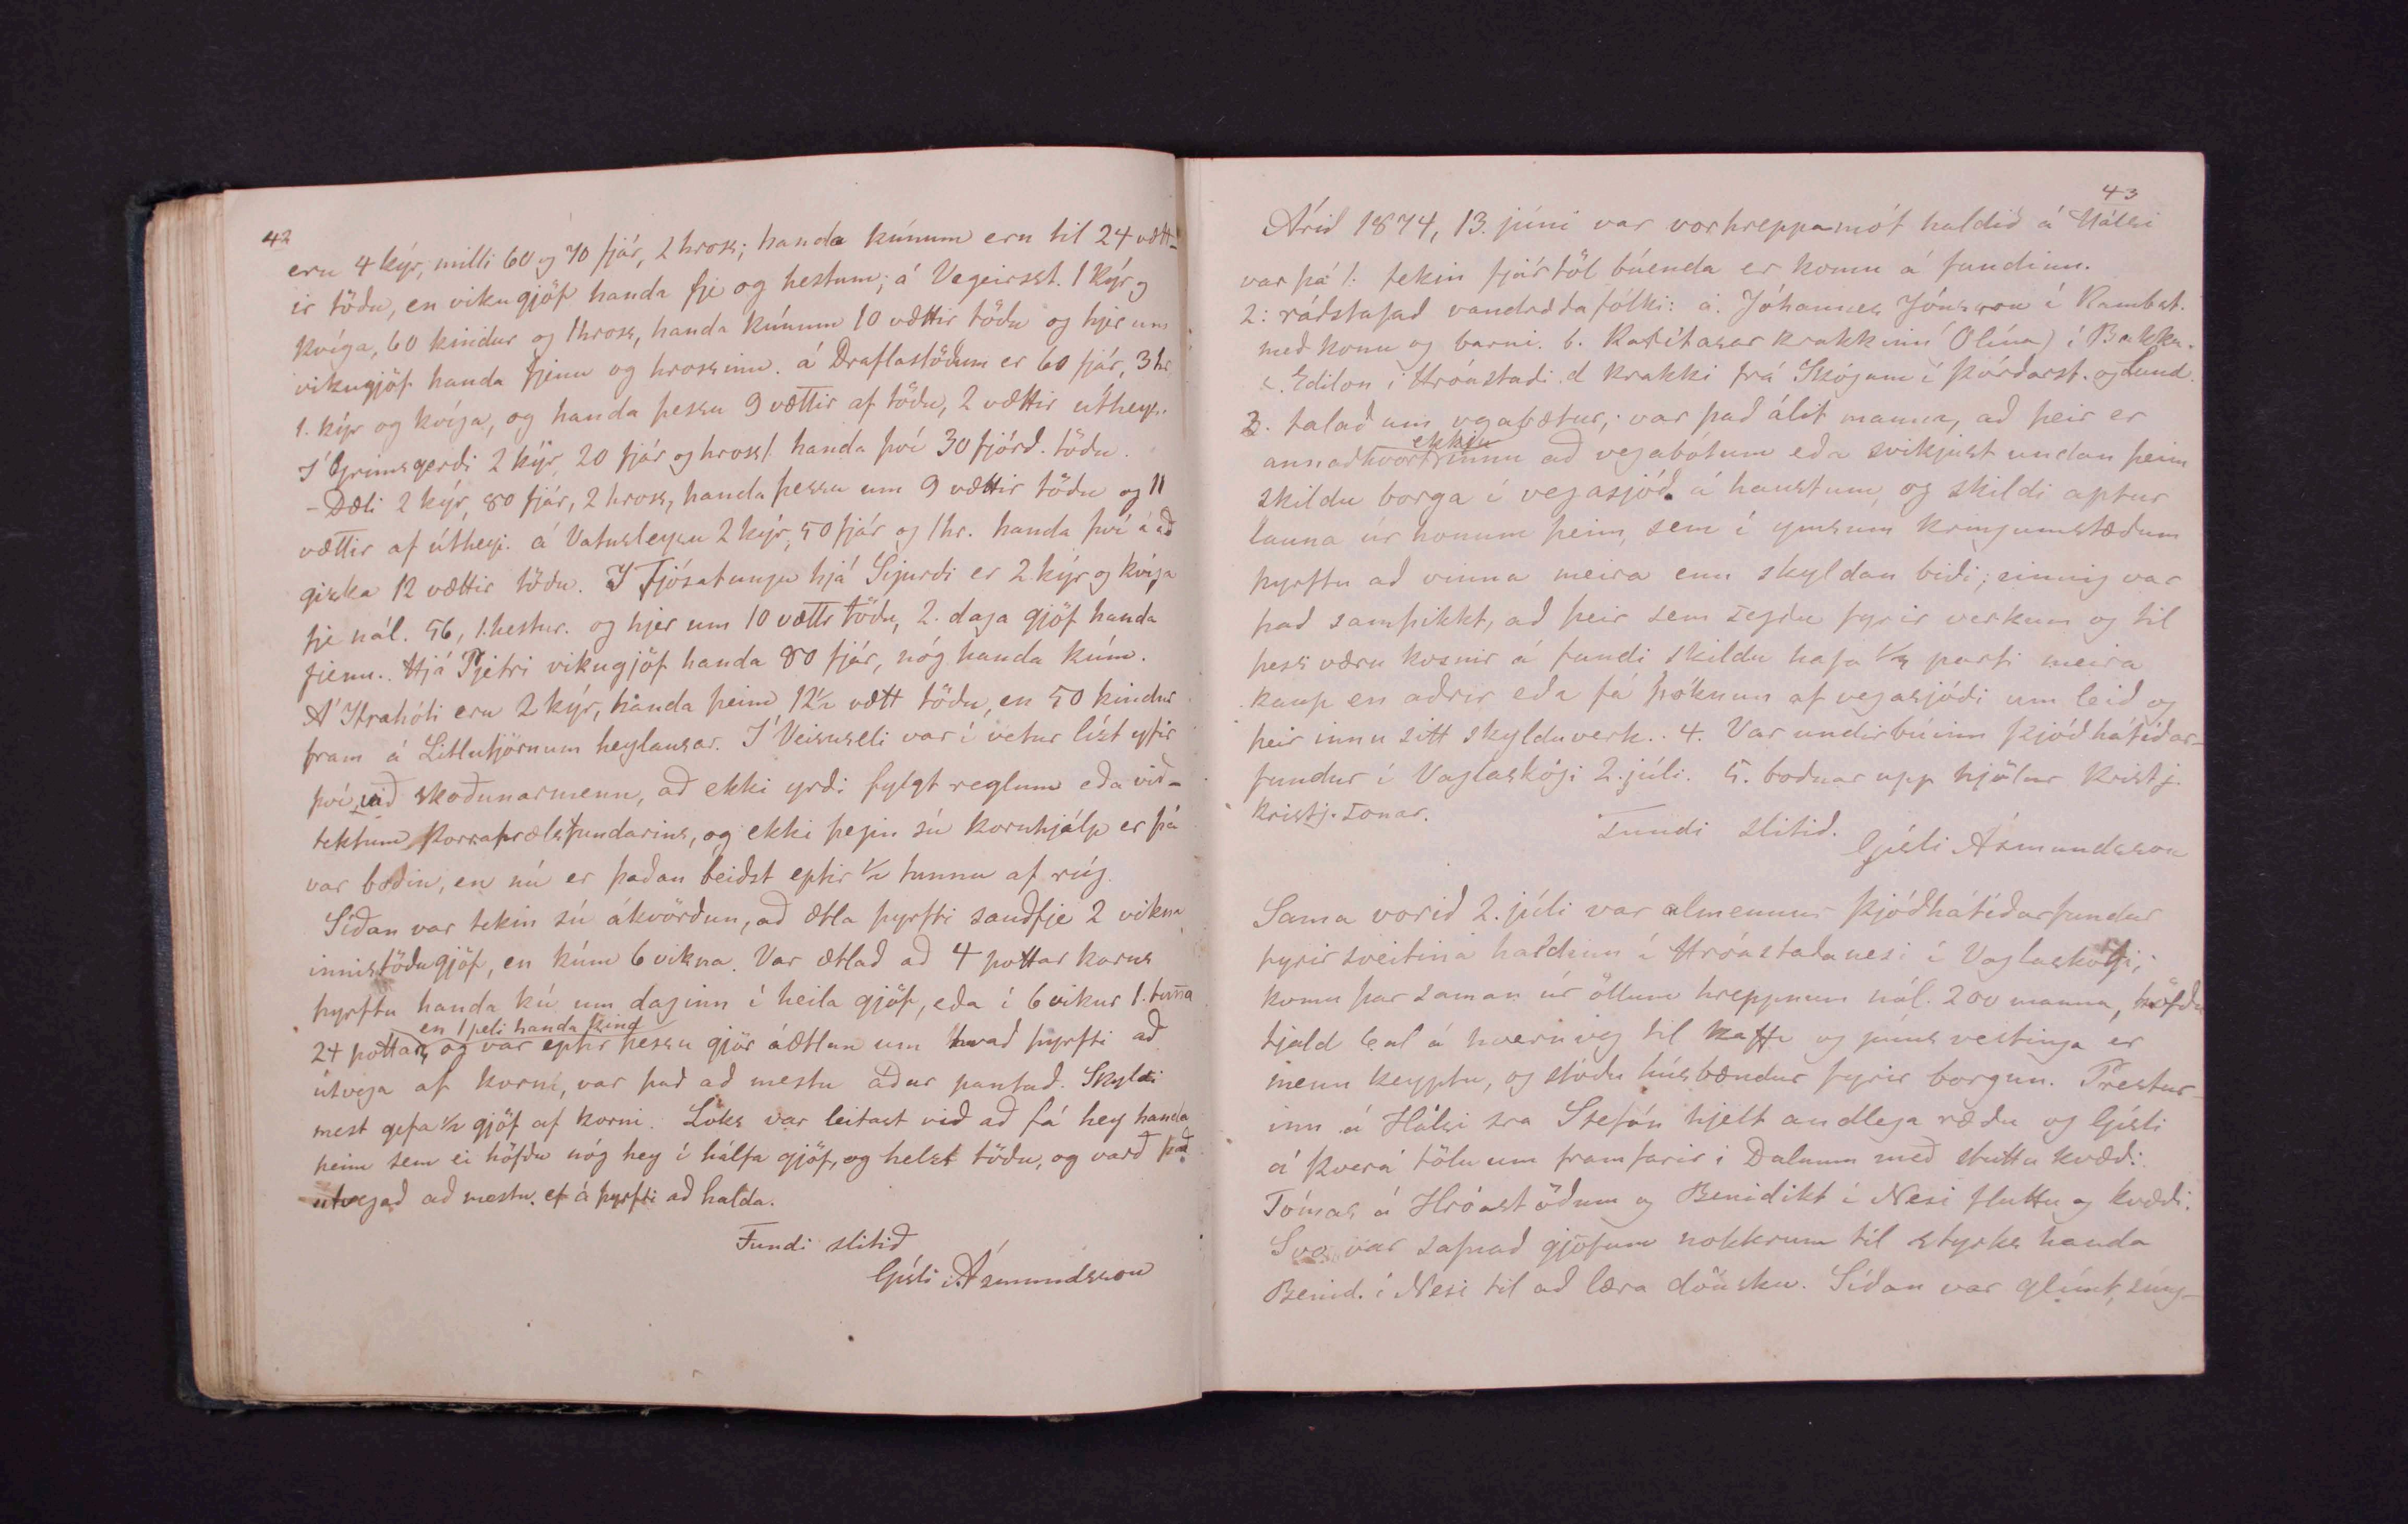 42
eru 4 kýr, milli 60 og 70 fjár, 2 hross; handa kúnum eru til 24 vætt-
ir töðu, en vikugjöf handa fje og hestum; á Vegeirsst. 1 kýr og
kvíga, 60 kindur og 1 hross, handa kúnum 10 vættir töðu og hjer um
vikugjöf handa fjenu og hrossinu. á Draflastöðum er 60 fjár, 3 hr.
1. kýr og kvíga, og handa þessu 9 vættir af töðu, 2 vættir útheys.
Í Grímsgerði 2 kýr, 20 fjár og hross 1. handa því 30 fjórð. töðu.
- Dæli 2 kýr, 80 fjár, 2 hross, handa þessu um 9 vættir töðu og 11
vættir af útheyi. á Vatnsleysu 2 kýr, 50 fjár og 1 hr. handa því á að
giska 12 vættir töðu. Í Fjósatungu hjá Sigurði er 2 kýr og kvíga
fje nál. 56, 1. hestur. og hjer um 10 vættr töðu, 2. daga gjöf handa
fjenu. Hjá Pjetri vikugjöf handa 80 fjár, nóg handa kúm.
Á Hrahóli eru 2 kýr, handa þeim 12½ vætt töðu, en 50 kindur
fram á Litlutjörnum heylausar. Í Veisuseli var í vetur lízt yfir
því, við skoðunarmenn, að ekki yrði fylgt reglum eða við-
tektum Þorraþrælsfundarins, og ekki þegin sú kornhjálp er þá
var boðin, en nú er þaðan beiðst eptir ½ tunnu af rúg.
Síðan var tekin sú ákvörðun, að ætla þyrfti sauðfje 2 vikna
innistöðugjöf, en kúm 6 vikna. Var ætlað að 4 pottar korns
þyrftu handa kú um daginn í heila gjöf, eða í 6 vikur 1. tunna
en 1 peli handa kind
24 pottar, og var eptir þessu gjör áætlun um hvað þyrfti að
útvega af korni, var það að mestu áður pantað. Skyldi
mest gefa ½ gjöf af korni. Loks var leitast við að fá hey handa
þeim sem ei höfðu nóg hey í hálfa gjöf, og helst töðu, og varð það
útvegað að mestu. ef á þyrfti að halda.
Fundi slitið
Gísli Ásmundsson
43
Árið 1874, 13. júní var vorhreppamót haldið á Hálsi
var þá 1: tekin fjártöl búenda er komu á fundinn.
2: ráðstafað vandræðafólki: a. Jóhannes Jónsson í Kambst.
með konu og barni. b. Karítasar krakkinn (Olína) í Bakka.
c. Edilon í Hróastaði. d krakki frá Skógum í Þórðarst. og Lund.
3. talað um vegabætur; var það álit manna, að þeir er
ekki
annaðhvort innu að vegabótum eða svikjust undan þeim
skildu borga í vegasjóð á haustum, og skildi aptur
launa úr honum þeim, sem í ymsum kringumstæðum
þyrftu að vinna meira enn skyldan biði; einnig var
það samþikkt, að þeir sem segðu fyrir verkum og til
þess væru kosnir á fundi skildu hafa ⅓ parti meira
kaup en aðrir eða fá þóknun af vegasjóði um leið og
þeir innu sitt skylduverk.. 4. Var undirbúinn þjóðhátíðar-
fundur í Vaglaskógi 2. júlí. 5. boðnar upp hjölur Kristj.
Kristj.sonar.
Fundi slitið.
Gísli Ásmundsson
Sama vorið 2. júlí var almennur þjóðhátíðarfundur
fyrir sveitina haldinn í Hróastaðanesi í Vaglaskógi;
komu þar saman úr öllum hreppnum nál. 200 manna, höfðu
tjald 6 al á hvernveg til kaffi og púns veitinga er
menn keyptu, og stóðu húsbændur fyrir borgun. Prestur-
inn á Hálsi sra Stefán hjelt andlega ræðu og Gísli
á Þverá tölu um framfarir í Dalnum með stuttu kvæði.
Tómas á Hróastöðum og Benidikt í Nesi fluttu og kvæði.
Svo var safnað gjöfum nokkrum til styrks handa
Benid. í Nesi til að læra dönsku. Síðan var glímt, súng-